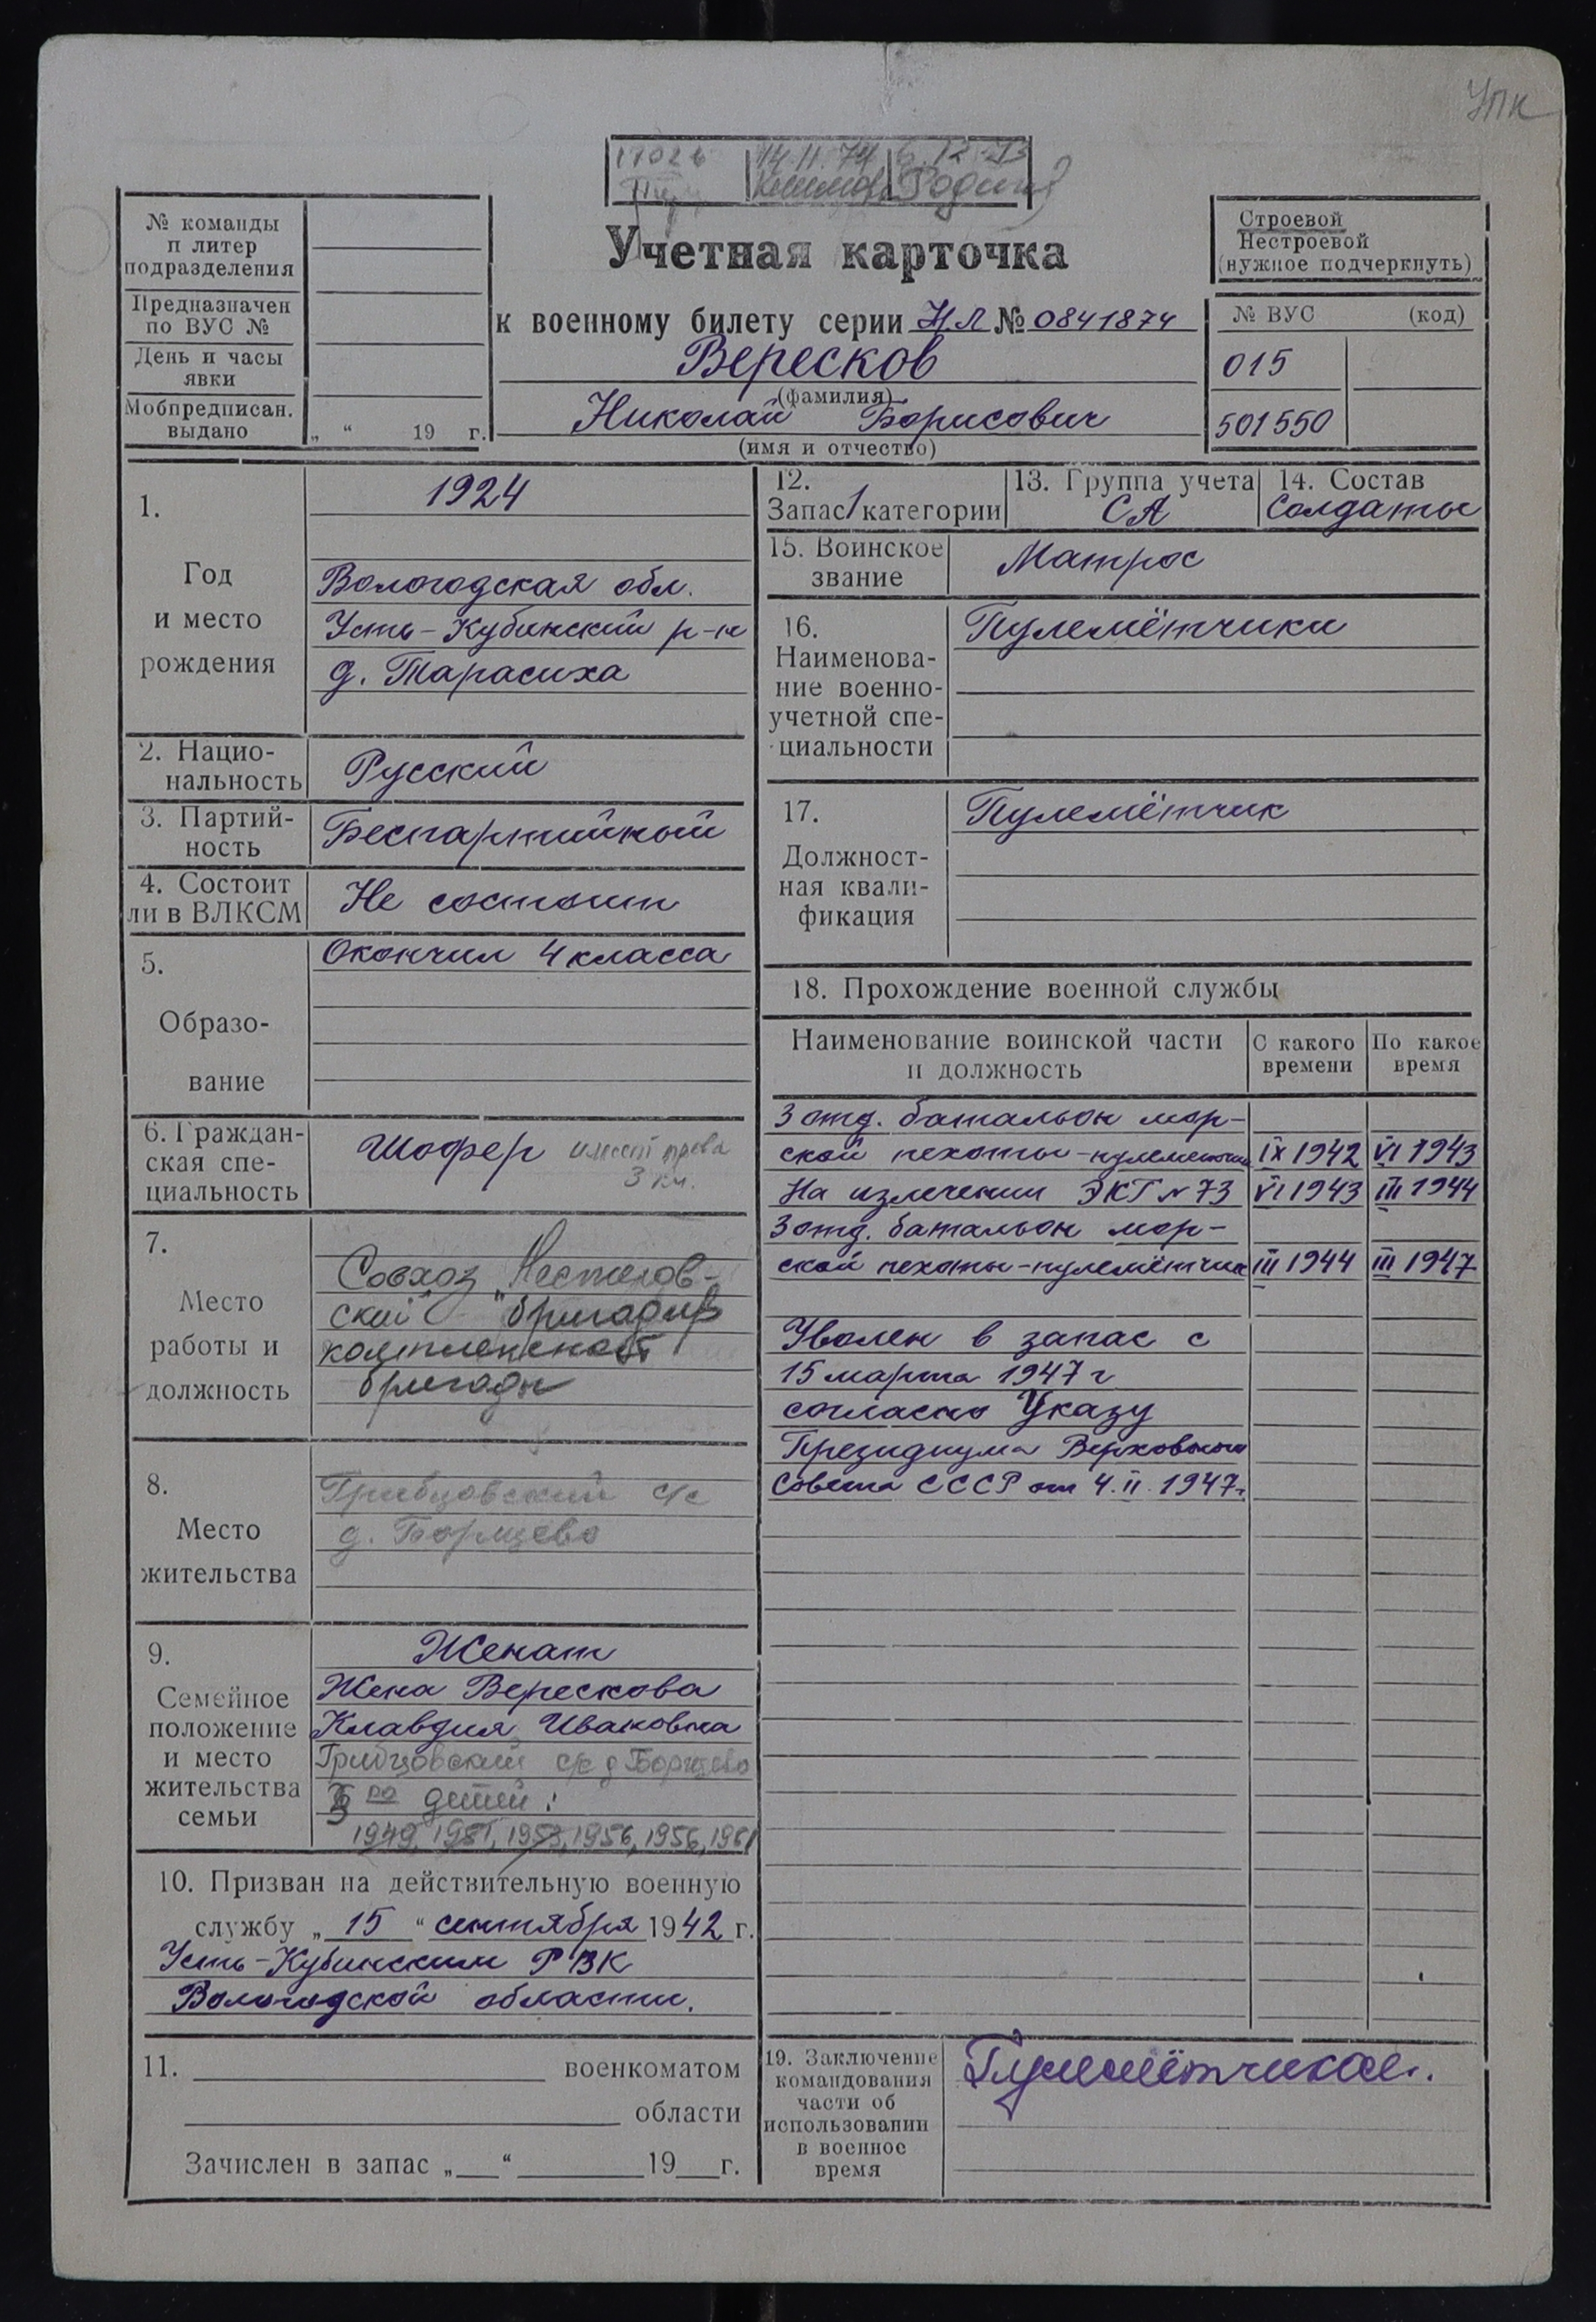 УПК
14.11.74
Учетная карточка
к военному билету серии НЛ № 0841874
Вересков
(фамилия)
Николай Борисович
(имя и отчество)
№ команды
и литер
подразделения
Предназначен
по ВУС №
День и часы
явки
Мобпредписан.
выдано
„ “ 19 г.
Строевой
Нестроевой
(нужное подчеркнуть)
№ ВУС (код)
015
501550
1.
Год
и место
рождения
1924
Вологодская обл.
Усть-Кубинский р-н
д. Тарасиха
2. Нацио-
нальность
Русский
3. Партий-
ность
Беспартийный
4. Состоит
ли в ВЛКСМ
Не состоит
5.
Образо-
вание
Окончил 4 класса
6. Граждан-
ская спе-
циальность
Шофер имеет права
3 кл.
7.
Место
работы и
должность
Совхоз „Нестеров-
ский“ бригадир
комплексной
бригады
8.
Место
жительства
Грибцовский с/с
д. Борщево
9.
Семейное
положение
и место
жительства
семьи
Женат
Жена Верескова
Клавдия Ивановна
Грибцовский с/с д Борщево
детей:
1949, 1951, 1953, 1956, 1956, 1961
10. Призван на действительную военную
службу „ 15 “ сентября 1942 г.
Усть-Кубинским РВК
Вологодской области.
11. военкоматом
области
Зачислен в запас „ “ 19 г.
12.
Запас 1 категории
13. Группа учета
СА
14. Состав
Солдаты
15. Воинское
звание
Матрос
16.
Наименова-
ние военно-
учетной спе-
циальности
Пулемётчики
17.
Должност-
ная квали-
фикация
Пулемётчик
18. Прохождение военной службы
Наименование воинской части
и должность
С какого
времени
По какое
время
3 отд. батальон мор-
ской пехоты-пулеметчик IX 1942 VI 1943
На излечении ЭКГ № 73 VI 1943 III 1944
3 отд. батальон мор-
ской пехоты-пулемётчик III 1944 III 1947
Уволен в запас с
15 марта 1947 г
согласно Указу
Президиума Верховного
Совета СССР от 4.II.1947г.
19. Заключение
командования
части об
использовании
в военное
время
Пулемётчиком.